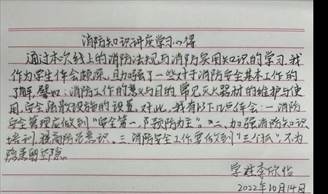 消防知识讲座学习心得
通过本次线上的消防法规与消防实用知识的学习，我
作为学生体会颇深，且加强了一些对于消防安全基本工作的
了解。譬如：消防工作的意义与目的、常见灭火器材的维护与使
用、安全疏散设施的设置。对此，我有以下几点体会：一、消防
安全管理应做到“安全第一，预防为主”。二、加强消防知识
培训，提高防范意识。三、消防安全工作要做到“三个找”，不为
隐患留余隐
学姓李欣怡
2022年10月14日